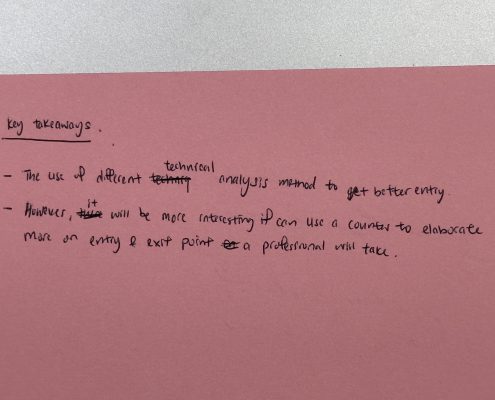 Key takeaways.
- The use of different technical analysis method to get better entry.
- However, it will be more interesting if can use a counter to elaborate
more on entry & exit point a professional will take.